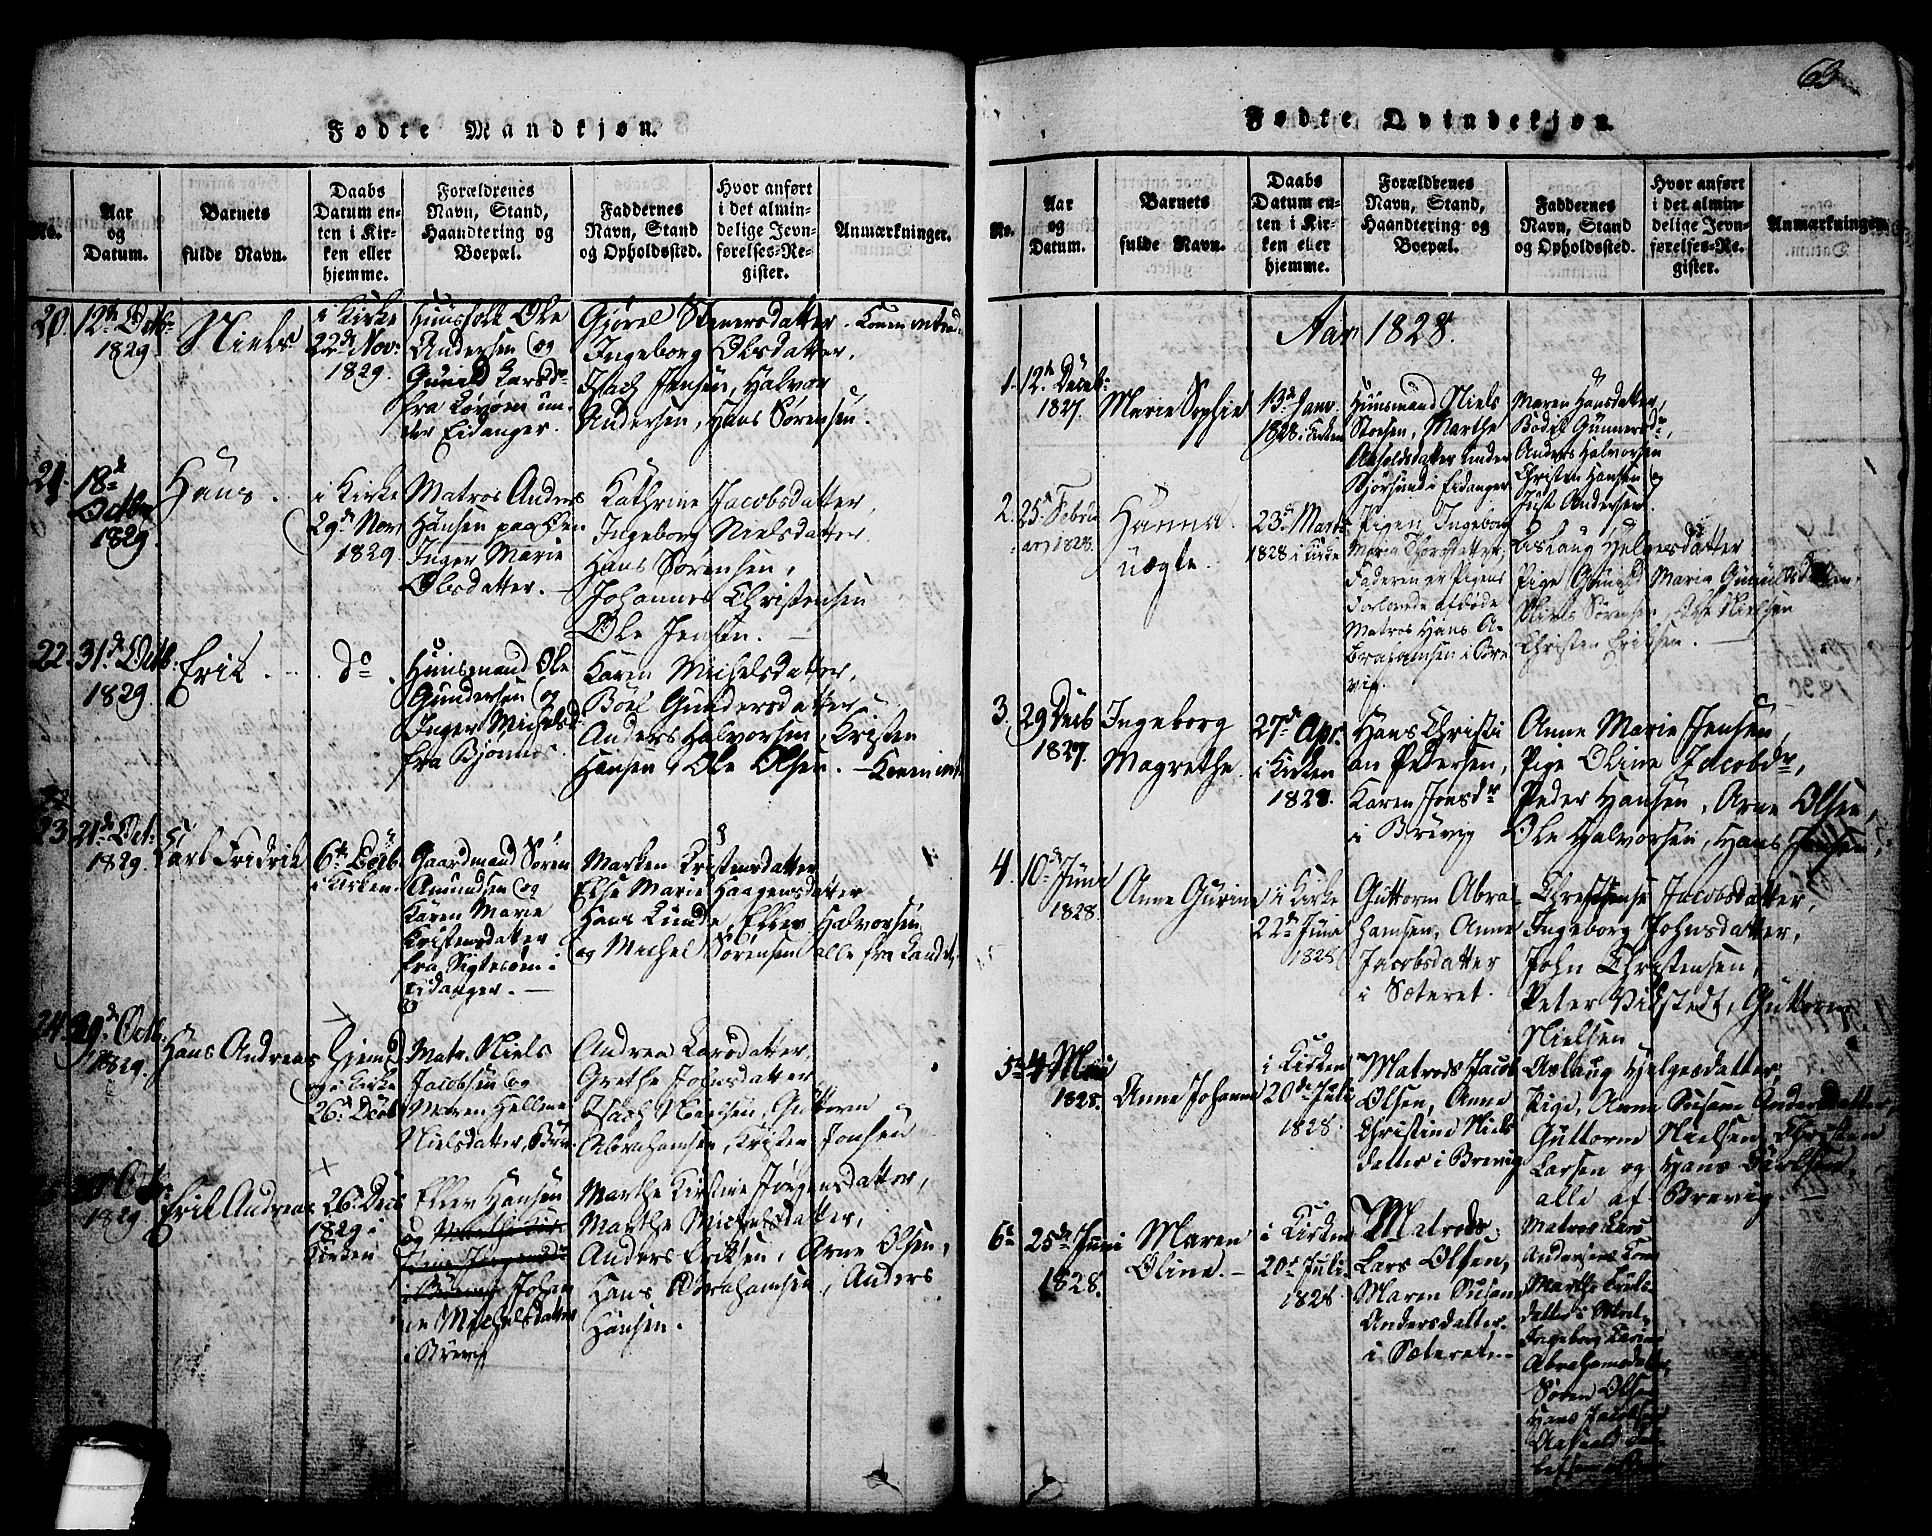 63
Fødte Mandkjøn.
No.
Aar
og
Datum.
Barnets
fulde Navn.
Daabs
Datum en-
ten i Kir-
ken eller
hjemme.
Forældrenes
Navn, Stand,
Haandtering og
Boepæl.
Faddernes
Navn, Stand
og Opholdssted.
Hvor anført
i det almin-
delige Jevn-
førelses-Re-
gister.
Anmærkninger.
20.
12te Octb.
1829.
Niels
i Kirke
22de Nov:
1829.
Ole
Andersen og
Gunild Larsd.
fra
der Eidanger.
Gjørel
Ingeborg Olsdatter,
Isach Jensen, Halvor
Andersen, Hans Sørensen.
21.
18de
Octbr
1829.
Hans.
i Kirke
29de Nov
1829
Matros Anders
Hansen paa Øen
Inger Marie
Olsdatter.
Kathrine Jacobsdatter,
Ingeborg Nielsdatter
Hans Sørensen,
Johannes Christensen
Ole Jensen.
22.
31de Octb.
1829.
Erik.
do.
Huusmand Ole
Gundersen og
Inger Michelsd.
fra
Karen Michelsdatter,
Boel Gundersdatter
Anders Halvorsen, Kristen
Hansen, Ole Olsen.
23
21de Oct.
1829.
Carl Fridrik
6te Decb.
i Kirken.
Gaardmand Søren
Amundsen og
Karen Marie
Kristensdatter
fra
Eidanger.
Maren Kristensdatter
Else Marie Haagensdatter
Hans Lunde, Ellev Halvorsen
og Michel Sørensen alle fra Landet.
24.
29de Octb.
1829.
Hans Andreas
Hjemd.
og i Kirke
26de Decb
Matr. Niels
Jacobsen og
Maren Helline
Nielsdatter,
Andrea Larsdatter,
Grethe Johnsdatter
Isach Nielsen, Guttorm
Abrahamsen, Kristen Jonsen
1829
Erik Andreas
26de Decb
1829 i
Kirken
Ellev Hansen
og
Johan
ne Michelsdatter
i Brevig
Marthe Kirstine Jørgensdatter,
Marthe Michelsdatter,
Anders Eriksen, Arne Olsen,
Hans Abrahamsen, Anders
Hansen.
Fødte Qvindekjøn.
No.
Aar
og
Datum.
Barnets
fulde Navn.
Daabs
Datum en-
ten i Kir-
ken eller
hjemme.
Forældrenes
Navn, Stand,
Haandtering og
Boepæl.
Faddernes
Navn, Stand
og Opholdssted.
Hvor anført
i det almin-
delige Jevn-
førelses-Re-
gister.
Anmærkninger.
Aar 1828.
1.
12te Decb:
1827.
Marie Sophie
13de Janv.
1828 i Kirken
Huusmand Niels
Marthe
Arholdsdatter under
i Eidanger
Maren Hansdatter,
Bodil Gunnersdr,
Anders Halvorsen
Christen Hansen
Just Andersen.
2.
25de Febru
arj 1828.
Hanna.
uægte.
23de Marts
1828 i Kirke
Pigen Ingeborg
Maria
Faderen er Pigens
Forlovede afdøde
Matros Hans A-
brahamsen i Bre
vig.
Aslaug Helgesdatter
Pige Gunild Maria
Niels Sørensen, Ole Nielsen
Christen Eriksen.
3.
29 Decb
1827.
Ingeborg
Magrethe.
27de Apr.
i Kirken
1828.
Hans Christi
an Pedersen,
Karen Jonsdr
i Brevig
Anne Marie Jensen,
Pige Oline Jacobdr,
Peder Hansen, Arne Olsen,
Ole Halvorsen, Hans Hansen,
4.
10de Juni
1828.
Anne Gurine
i Kirke
22de Juni
1828
Guttorm Abra-
hamsen, Anne
Jacobsdatter
i Sæteret.
Christense Jacobsdatter,
Ingeborg Johnsdatter,
John Christensen,
Peter Vilstedt, Guttorm
Nielsen
5te
4 Mai
1828.
Anne Johanne
i Kirken
20de Juli
1828.
Matrods Jacob
Olsen, Anne
Christine Niels
datter i Brevig
Aslaug Hjelgesdatter,
Pige, Anne Susane Andersdatter,
Guttorm Nielsen, Christen
Larsen og Hans Carlsen,
alle af Brevig.
6te
25de Juni
1828.
Maren
Oline.
i Kirken
20de Juli
1828
Matrods,
Lars Olsen,
Maren Susan
Andersdatter.
i Sæteret.
Matros Lars
Andersens Kone
Marthe
Ingeborg Karine
Abrahamsdatter,
Søren Olsen
Hans Jacobsen